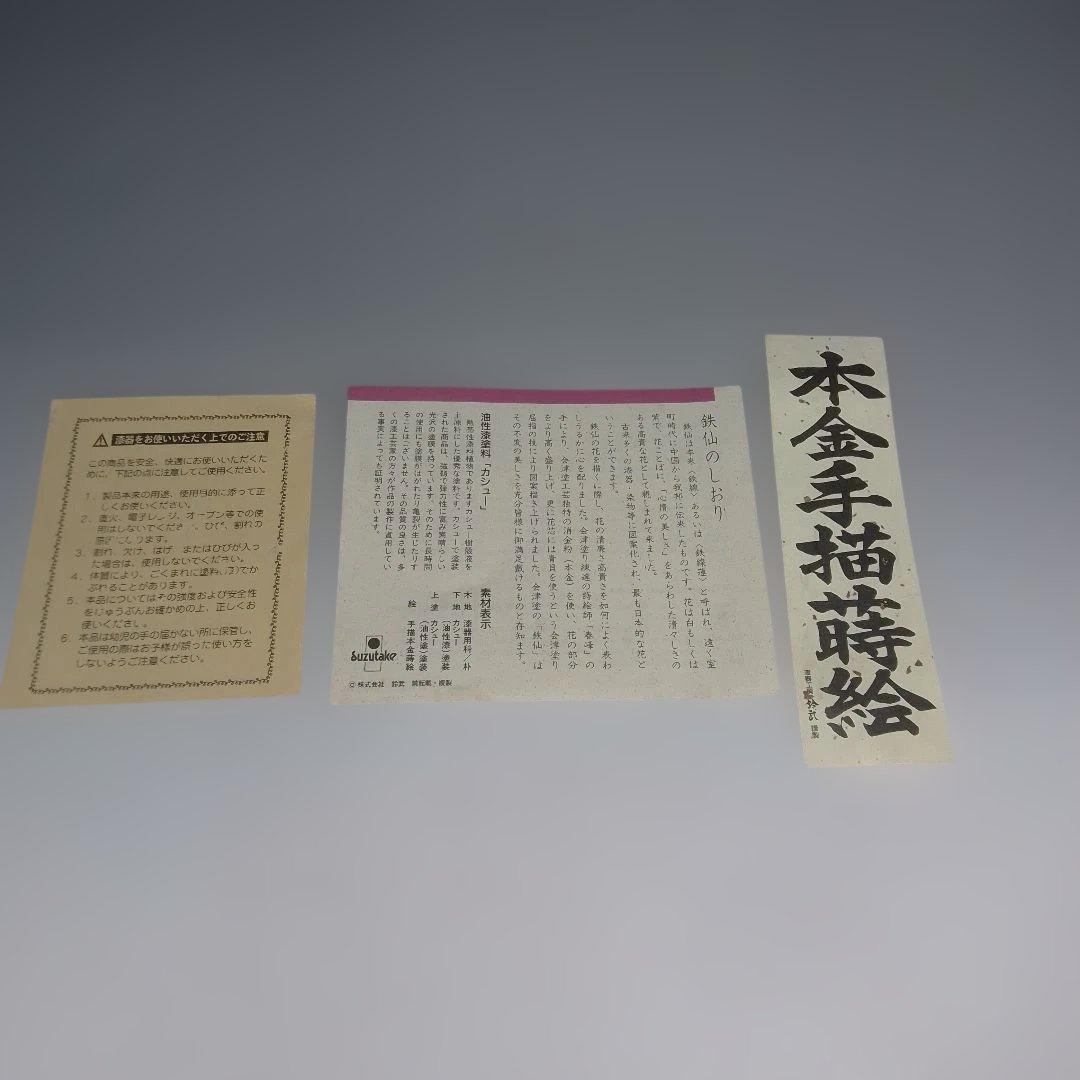 漆器をお使いいただく上でのご注意
この商品を安全、快適にお使いいただくた
めに、下記の点に注意してご使用ください。
1、製品本来の用途、使用目的に添って正
しくお使いください。
2、直火、電子レンジ、オーブン等での使
用はしないでください。ひび、割れの
原因になります。
3、割れ、欠け、はげ、またはひびが入っ
た場合は、使用しないでください。
4、体質により、ごくまれに塗料でか
ぶれることがあります。
5、本品についてはその強度および安全性
をじゅうぶんお確かめの上、正しくお
使いください。
6、本品は幼児の手の届かない所に保管し、
ご使用の際はお子様が誤った使い方を
しないようご注意ください。
鉄仙のしおり
鉄仙は本来〈鉄線〉あるいは〈鉄線蓮〉と呼ばれ、遠く室
町時代に中国から我邦に伝来したものです。花は白もしくは
紫で、花ことばに、「心情の美しさ」をあらわした清々しさの
ある高貴な花として親しまれて来ました。
古来多くの漆器・染物等に図案化され、最も日本的な花と
いうことができます。
鉄仙の花を描くに際し、花の清廉さ高貴さを如何によく表わ
しうるかに心を配りました。会津塗り練達の蒔絵師「春峰」の
手により、会津塗工芸独特の消金粉（本金）を使い、花の部分
をより高く盛り上げ、更に花芯には青貝を使うという会津塗り
屈指の技により図案描き上げられました。会津塗の「鉄仙」は
その不変の美しさを充分皆様に御満足戴けるものと存知ます。
油性漆塗料「カシュー」
熱帯性漆科植物でありますカシュー樹殻液を
主原料にした優秀な塗料です。カシューで塗装
された商品は、強靭で弾力性に富み素晴らしい
光沢の塗膜を持っています。そのために長時間
の使用にも塗膜がはがれたり亀裂が生じたりす
ることはございません。その品質の良さは、多
くの漆工芸家の方々が作品の製作に直用してい
る事実によっても証明されています。
素材表示
木地 漆器用科／朴
下地 カシュー
（油性漆）塗装
上塗 カシュー
（油性塗）塗装
絵 手描本金蒔絵
Suzutake
© 株式会社 鈴武 禁転載・複製
本金手描蒔絵
鈴武 謹製